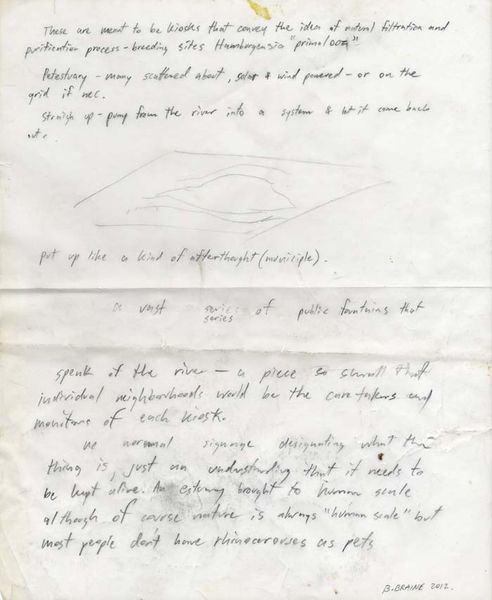 These are meant to be kiosks that convey the idea of natural filtration and
purification process - breeding sites Hamburgensia "primal ooze"
Petestuary - many scattered about, solar & wind powered - or on the
grid if nec.
straigh up - pump from the river into a system & let it come back
out.
put up like a kind of afterthought (municiple).
a vast series of public fountains that
series
speak of the river - a piece so small that
individual neighborhoods would be the care takers and
monitors of each kiosk.
no normal signage designating what the
thing is, just an understanding that it needs to
be kept alive. An estuary brought to human scale
although of course nature is always "human scale" but
most people dont have rhinocerouses as pets
B. BRAINE 2012.